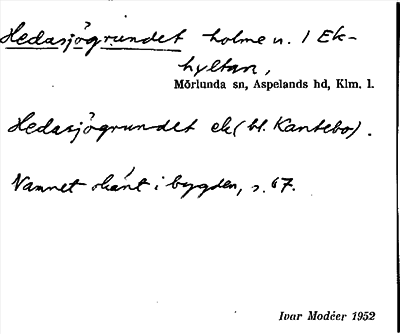 Hedasjögrundet holme n. l Ek-
hyltan,
Mörlunda sn, Aspelands hd, Klm. l.
Hedasjögrundet ek (bl. Kantebo).
Namnet okänt i bygden, s. 67.
Ivar Modéer 1952